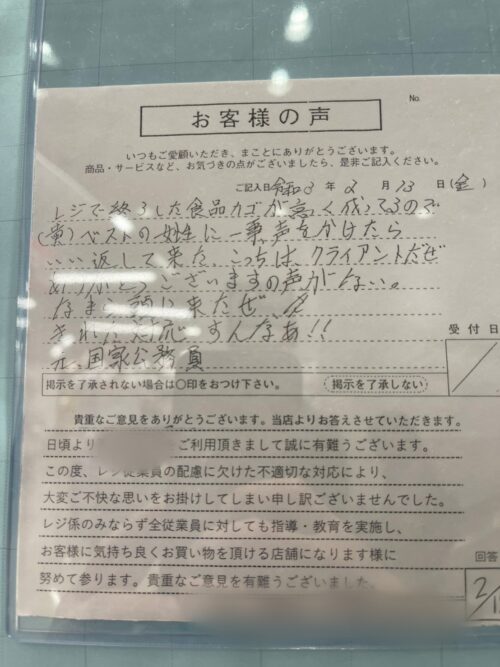 No.
お客様の声
いつもご愛顧いただき、まことにありがとうございます。
商品・サービスなど、お気づきの点がございましたら、是非ご記入ください。
ご記入日 令和3年2月13日(金)
レジで終了した食品カゴが高く成ってるので
(黄)ベストの女性に一声をかけたら
いい返して来た、こっちは、クライアントだぜ
ありがとうございますの声がない。
なまら頭に来たぜ
すんなあ!!
元、国家公務員
受付日
掲示を了承されない場合は〇印をおつけ下さい。
掲示を了承しない
貴重なご意見をありがとうございます。当店よりお答えさせていただきます。
日頃より ご利用頂きまして誠に有難うございます。
この度、レジ従業員の配慮に欠けた不適切な対応により、
大変ご不快な思いをお掛けしてしまい申し訳ございませんでした。
レジ係のみならず全従業員に対しても指導・教育を実施し、
お客様に気持ち良くお買い物を頂ける店舗になります様に
努めて参ります。貴重なご意見を有難うございました。
回答
2/1